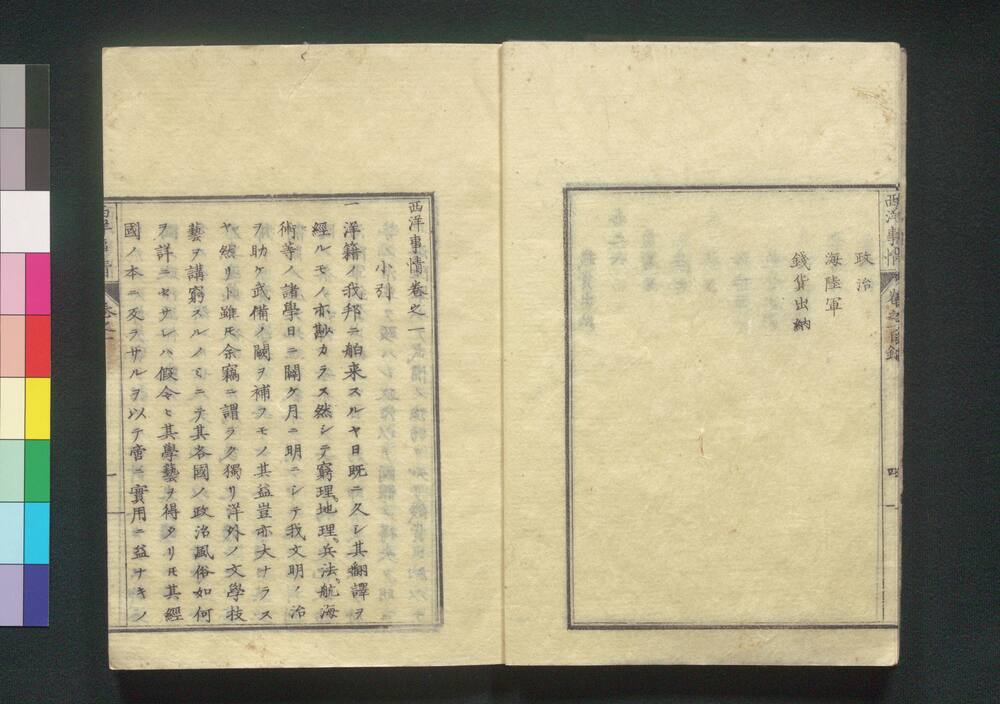 西洋事情 卷之一目錄
政治
海陸軍
錢貨出納
四
西洋事情卷之一
小引
一 洋籍ノ我邦ニ舶来スルヤ日既ニ久シ其翻譯ヲ
經ルモノ亦尠カラス然シテ窮理、地理、兵法、航海
術等ノ諸學日ニ闢ケ月ニ明ニシテ我文明ノ治
ヲ助ケ武備ノ闕ヲ補フモノ其益豈亦大ナラス
ヤ然リト雖𪜈余竊ニ謂ラク獨リ洋外ノ文學技
藝ヲ講窮スルノミニテ其各國ノ政治風俗如何
ヲ詳ニセサレハ假令ヒ其學藝ヲ得タリ𪜈其經
國ノ本ニ反ラサルヲ以テ啻ニ實用ニ益ナキノ
西洋事情 卷之一
一